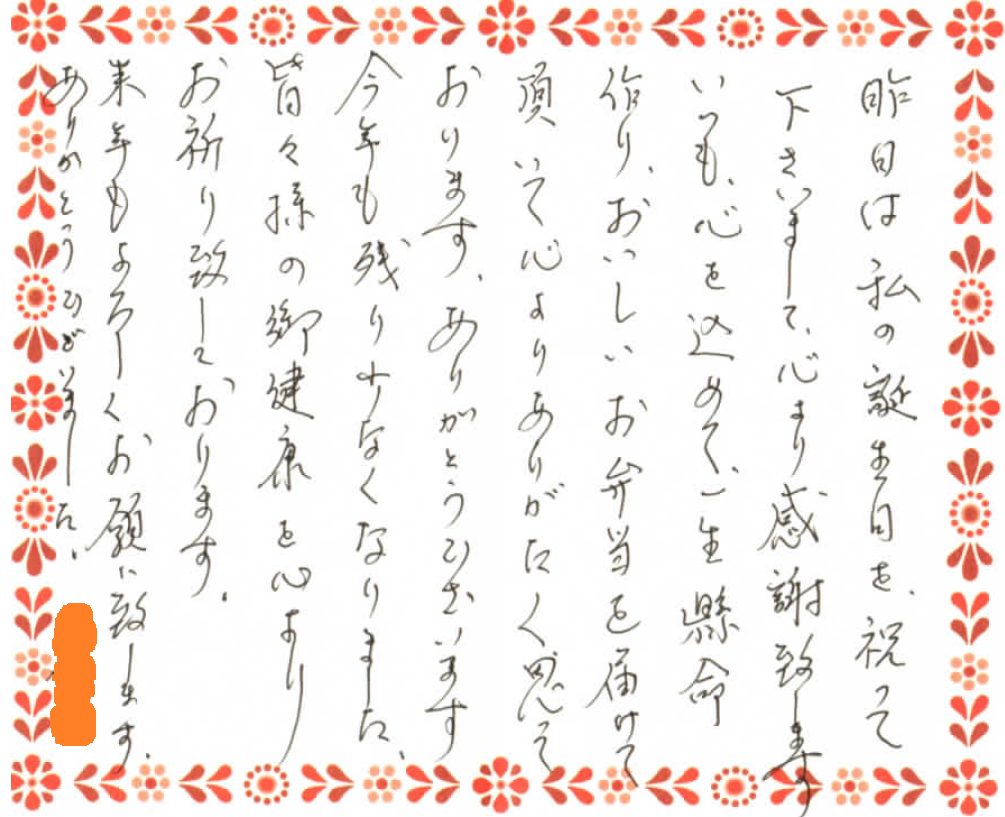 昨日は私の誕生日を、祝って
下さいまして、心より感謝致します
いつも、心を込めて、一生懸命
作り、おいしいお弁当を届けて
頂いて心よりありがたく思って
おります、ありがとうございます
今年も残り少なくなりました、
皆々様の御健康を心より
お祈り致しております。
来年もよろしくお願い致します、
ありがとうございました、